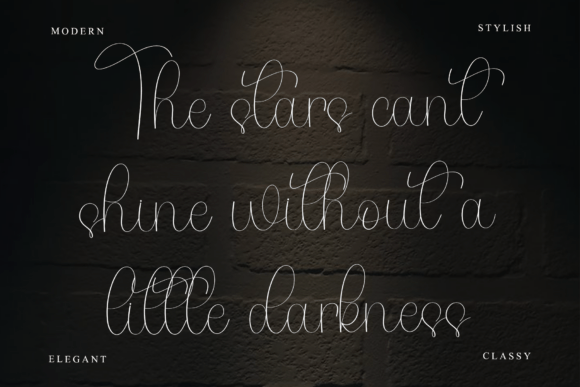 MODERN
STYLISH
The stars cant
shine without a
little darkness
ELEGANT
CLASSY